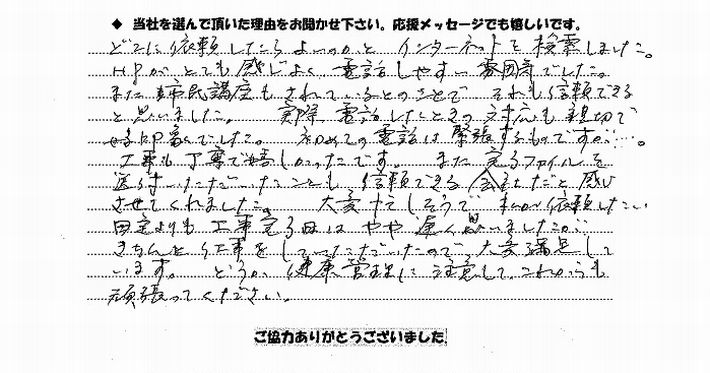 ◆ 当社を選んで頂いた理由をお聞かせ下さい。応援メッセージでも嬉しいです。
どこに依頼したらよいのかと インターネットで検索しました。
HPが、とても感じよく、電話しやすい雰囲気でした。
また市民講座もされているとのことで それも信頼できる
と思いました。 実際、電話したときの対応も親切で
好印象でした。 初めての電話は緊張するものですが…。
工事も丁寧で嬉しかったです。 また完了ファイルを
送付いただいたことも、信頼できる会社だと感じ
させてくれました。 大変 そうで 私が依頼したい
日定よりも 工事完了日は やや遅く思いましたが、
きちんと仕事をしていただいたので、大変満足して
います。 どうか、健康管理に注意して、これからも
頑張ってください。
ご協力ありがとうございました。